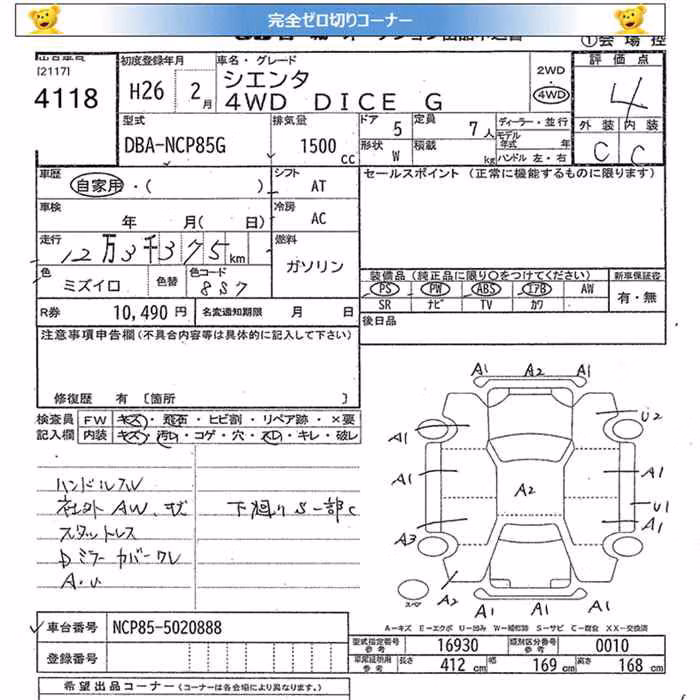 完全ゼロ切りコーナー
①会場控
[2117]
4118
初度登録年月
H26 2月
車名・グレード
シエンタ
4WD DICE G
2WD・4WD
評価点
4
外装 内装
C C
型式
DBA-NCP85G
排気量
1500cc
ドア 5
定員 7人
形状 W
積載 kg
ディーラー・並行
モデル年式 年
ハンドル 左・右
車歴
自家用・( )
シフト AT
車検
年 月( 日)
冷房 AC
走行
12万3千375km
燃料
ガソリン
色
ミズイロ
色替
色コード
8S7
R券 10,490円
名変通知期限 月 日
セールスポイント(正常に機能するものに限ります)
装備品(純正品に限り○をつけてください)
新車保証書
PS PW ABS エアB AW
SR ナビ TV カワ
有・無
後日品
注意事項申告欄(不具合内容等は具体的に記入して下さい)
修復歴 有 [箇所 ]
検査員記入欄
FW キズ・飛石・ヒビ割・リペア跡・×要
内装 キズ・汚レ・コゲ・穴・スレ・キレ・破レ
ハンドルスレ
社外AW、
下廻りS一部C
スタットレス
Dミラーカバークレ
A・U
A1 A2 A1
A1 U2
A1 A2 A1
U1
A3 A1
A2 A1 A1 A2
スペア
A-キズ E-エクボ U-凹み W-補修跡 S-サビ C-腐食 XX-交換済
車台番号 NCP85-5020888
登録番号
型式指定番号 参考 16930
類別区分番号 参考 0010
車庫証明用 参考
長さ 412cm 幅 169cm 高さ 168cm
希望出品コーナー(コーナーは各会場により異なります。)